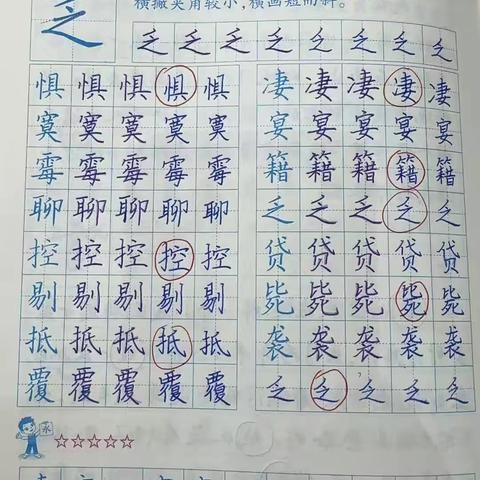 乏
横撇夹角较小,横画短而斜。
乏乏乏乏乏乏乏乏
惧惧惧惧惧
寞寞寞寞寞
霉霉霉霉霉
聊聊聊聊聊
控控控控控
剔剔剔剔剔
抵抵抵抵抵
覆覆覆覆覆
凄凄凄凄凄
宴宴宴宴宴
籍籍籍籍籍
乏乏乏乏乏
贷贷贷贷贷
毙毙毙毙毙
袭袭袭袭袭
乏乏乏乏乏
永